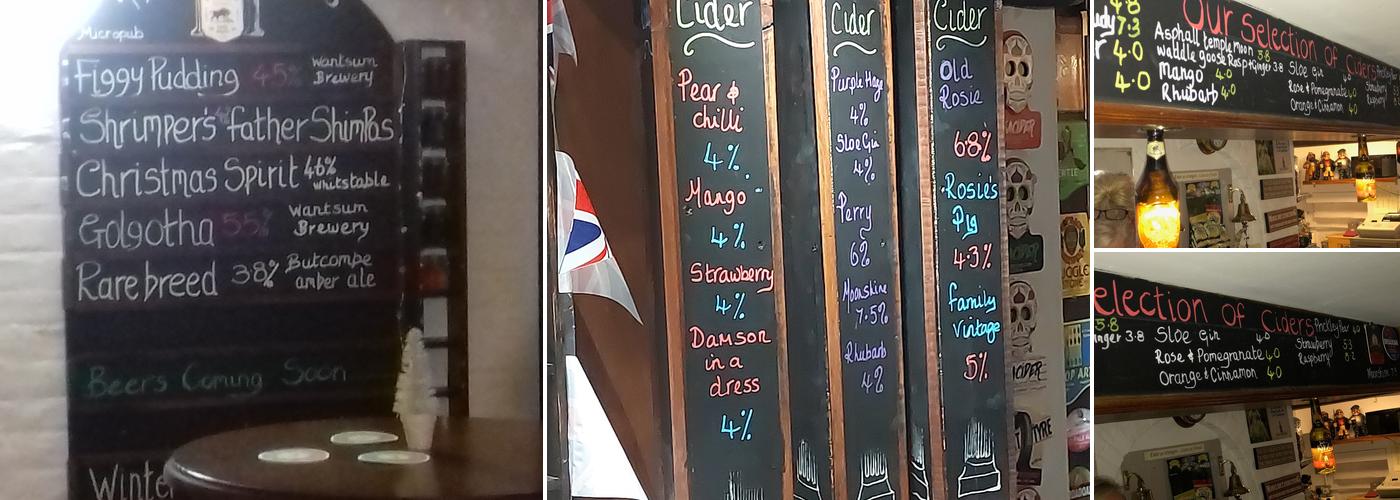 Micropub
Figgy Pudding 4.5% Wantsum Brewery
Shrimper's father ShimPas
Christmas Spirit 4.6% whitstable
Golgotha 5.5% Wantsum Brewery
Rare breed 3.8% Butcombe amber ale
Beers Coming Soon
Winter
Cider
Pear &
chilli
4%
Mango
4%
Strawberry
4%
Damson
in a
dress
4%
Cider
Purple Haze
4%
Sloe Gin
4%
Perry
6%
Moonshine
7.5%
Rhubarb
4%
Cider
Old
Rosie
6.8%
Rosie's
Pig
4.3%
family
vintage
5%
Our Selection of Ciders
4.8
7.3
4.0
4.0
Asphall temple Moon 5.8
waddle goose Rasp+Ginger 3.8
Mango 4.0
Rhubarb 4.0
Sloe Gin
Rose & Pomegranate 4.0
Orange & Cinnamon 4.0
election of Ciders
5.8
nger 3.8
Sloe Gin 4.0
Rose & Pomegranate 4.0
Orange & Cinnamon 4.0
Prickly Pear 4.0
Strawberry 5.3
Raspberry